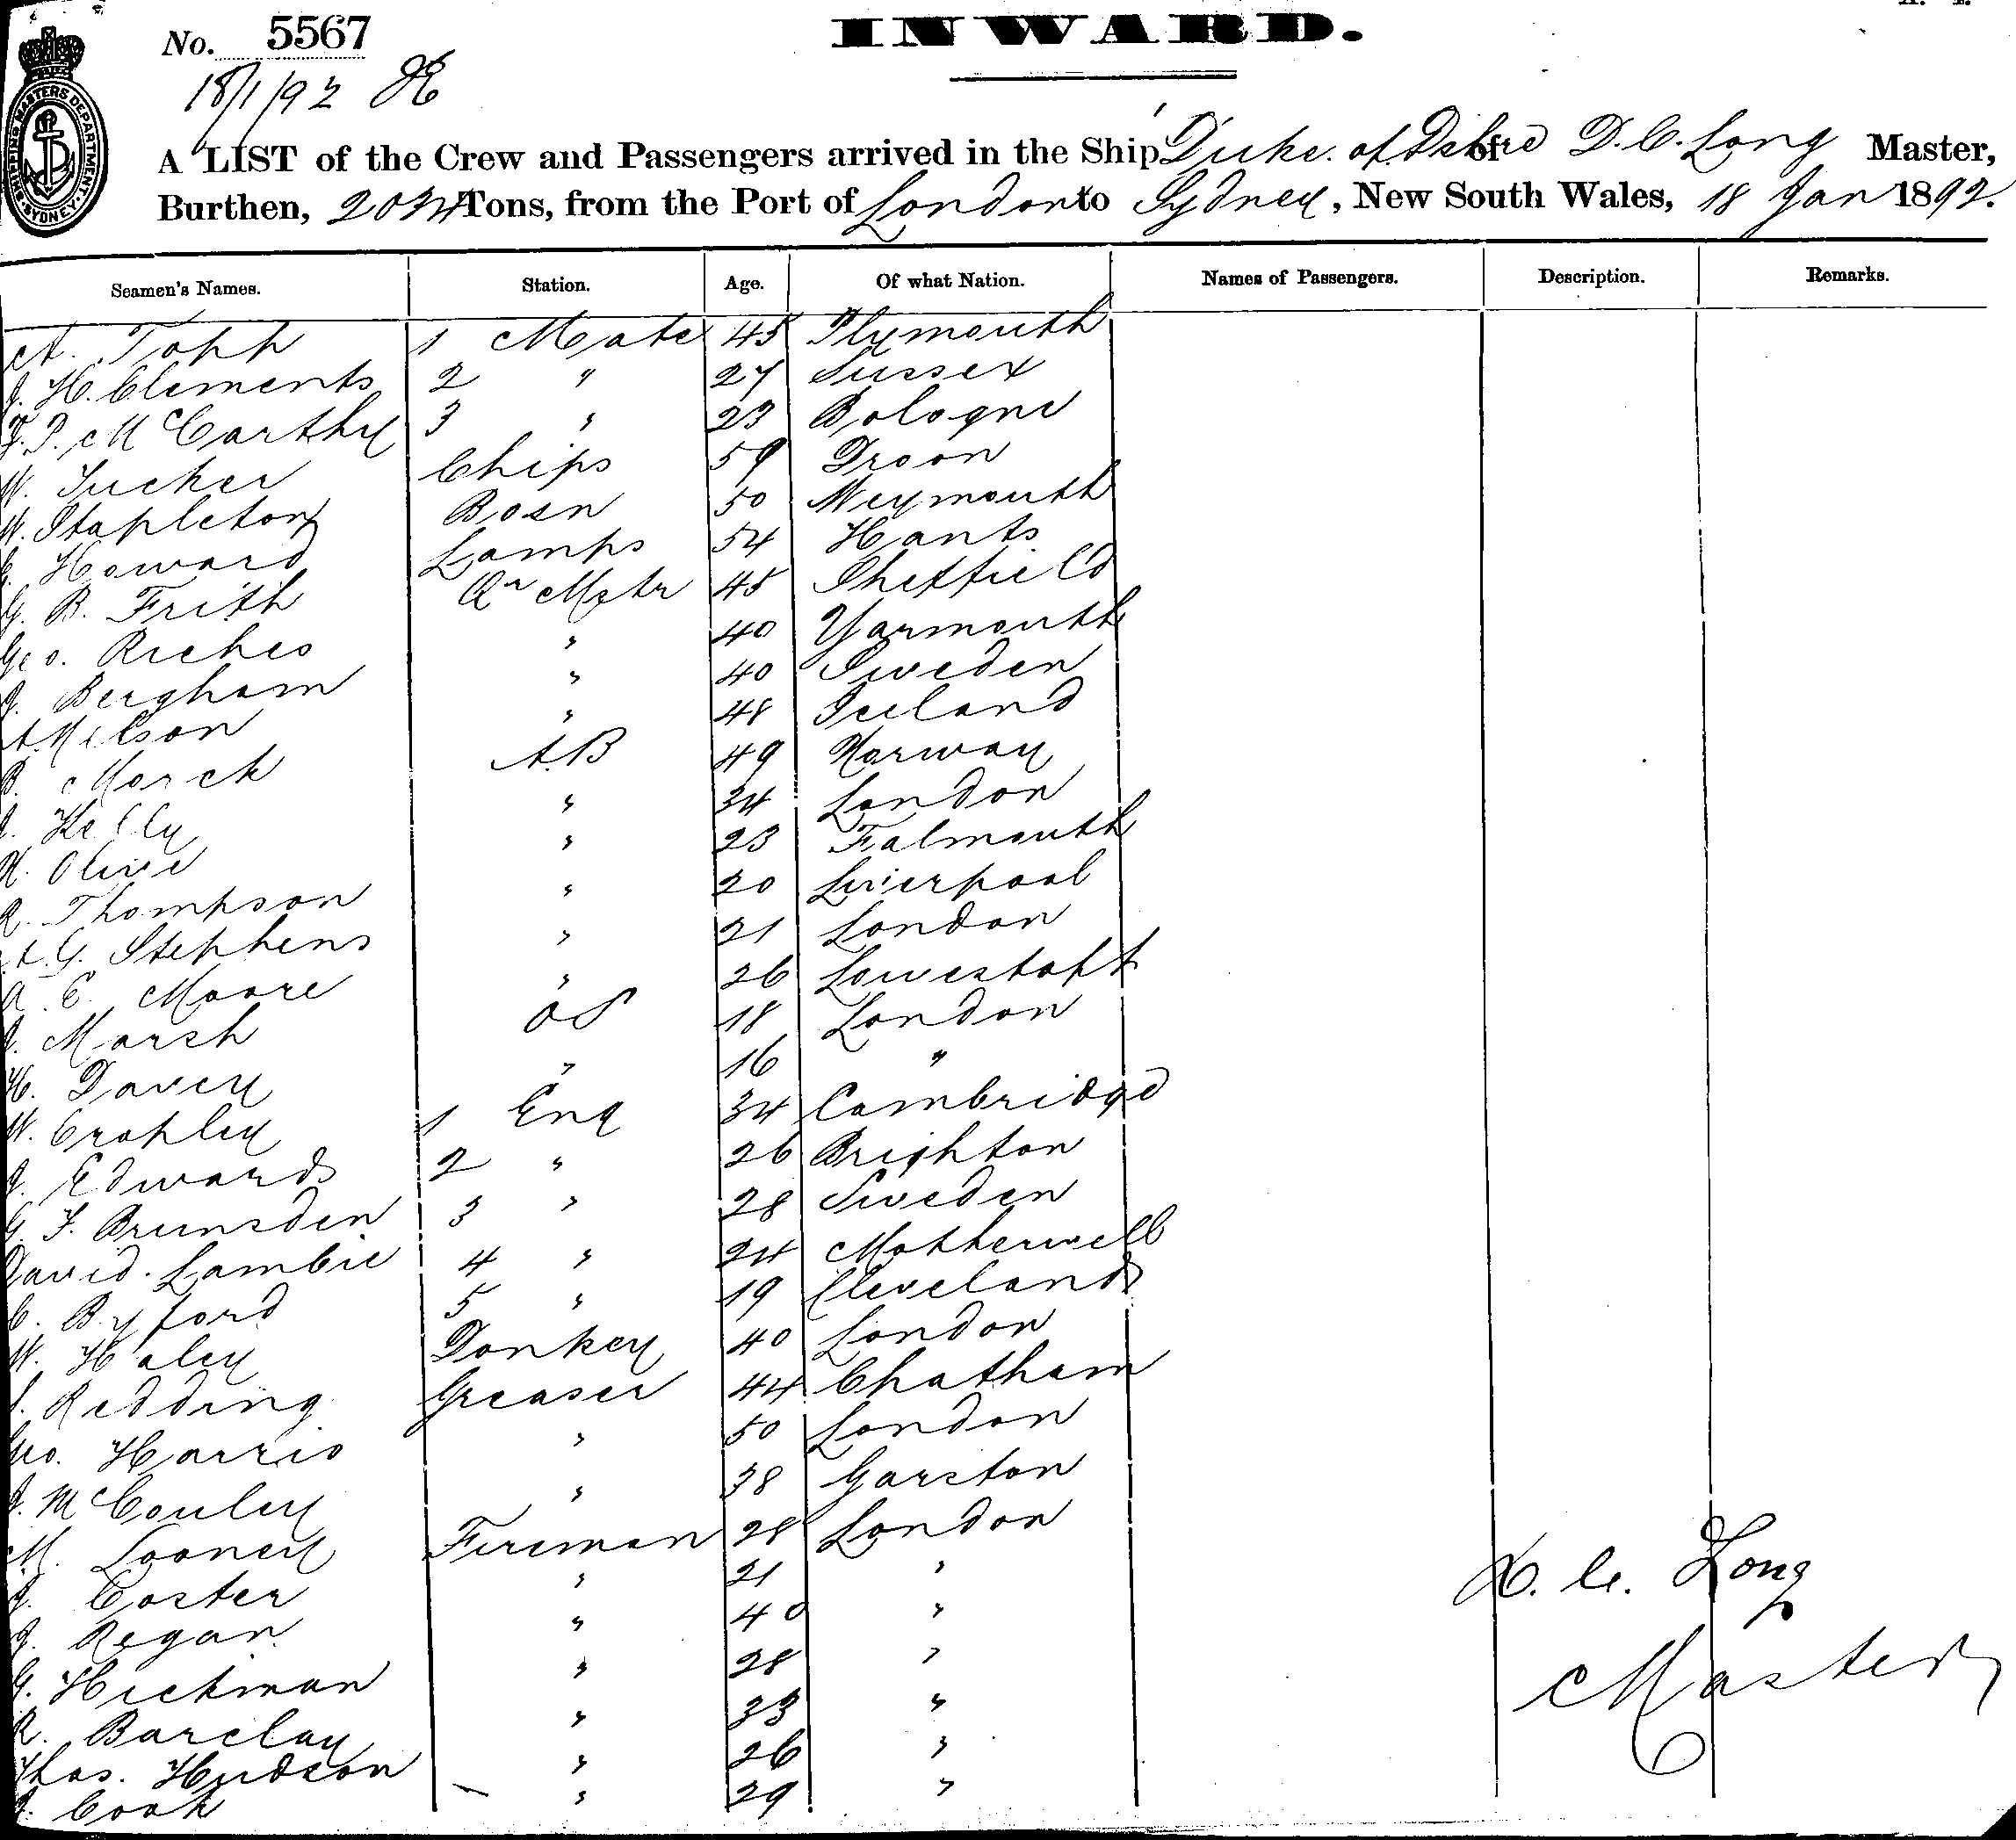 No. 5567
INWARD.
18/1/92
SHIPPING MASTERS DEPARTMENT SYDNEY
A LIST of the Crew and Passengers arrived in the Ship Duke of of D. C. Long Master,
Burthen, Tons, from the Port of London to Sydney, New South Wales, 18 Jan 1892.
Seamen's Names. Station. Age. Of what Nation. Names of Passengers. Description. Remarks.
A. Topp 1 Mate 45 Plymouth
J. H. Clements 2 " 27 Sussex
F. P. McCarthy 3 " 23 Bologne
W. Tucker Chips 59 Droon
W. Stapleton Bosn 50 Weymouth
C. Howard Lamps 54 Hants
G. B. Frith Qr Mstr 45 Sheffield
Geo. Riches " 40 Yarmouth
J. Bergham " 40 Sweden
A. Nelson " 48 Iceland
B. Morck AB 49 Norway
J. Kelly " 34 London
H. Olive " 23 Falmouth
R. Thompson " 20 Liverpool
A. G. Stephens " 21 London
A. E. Moore " 26 Lowestoft
J. Marsh OS 18 London
H. Davey " 16 "
W. Cropley 1 Eng 34 Cambridge
J. Edwards 2 " 26 Brighton
G. F. Brunsden 3 " 28 Sweden
David Lambie 4 " 24 Motherwell
C. Byford 5 " 19 Cleveland
W. Haley Donkey 40 London
J. Redding Greaser 44 Chatham
Geo. Harris " 50 London
J. McCouley " 38 Garston
M. Looney Fireman 28 London
J. Coster " 21 "
J. Regan " 40 "
G. Hickman " 28 "
R. Barclay " 33 "
Thos. Hudson " 26 "
J. Cook " 29 "
D. C. Long
Master